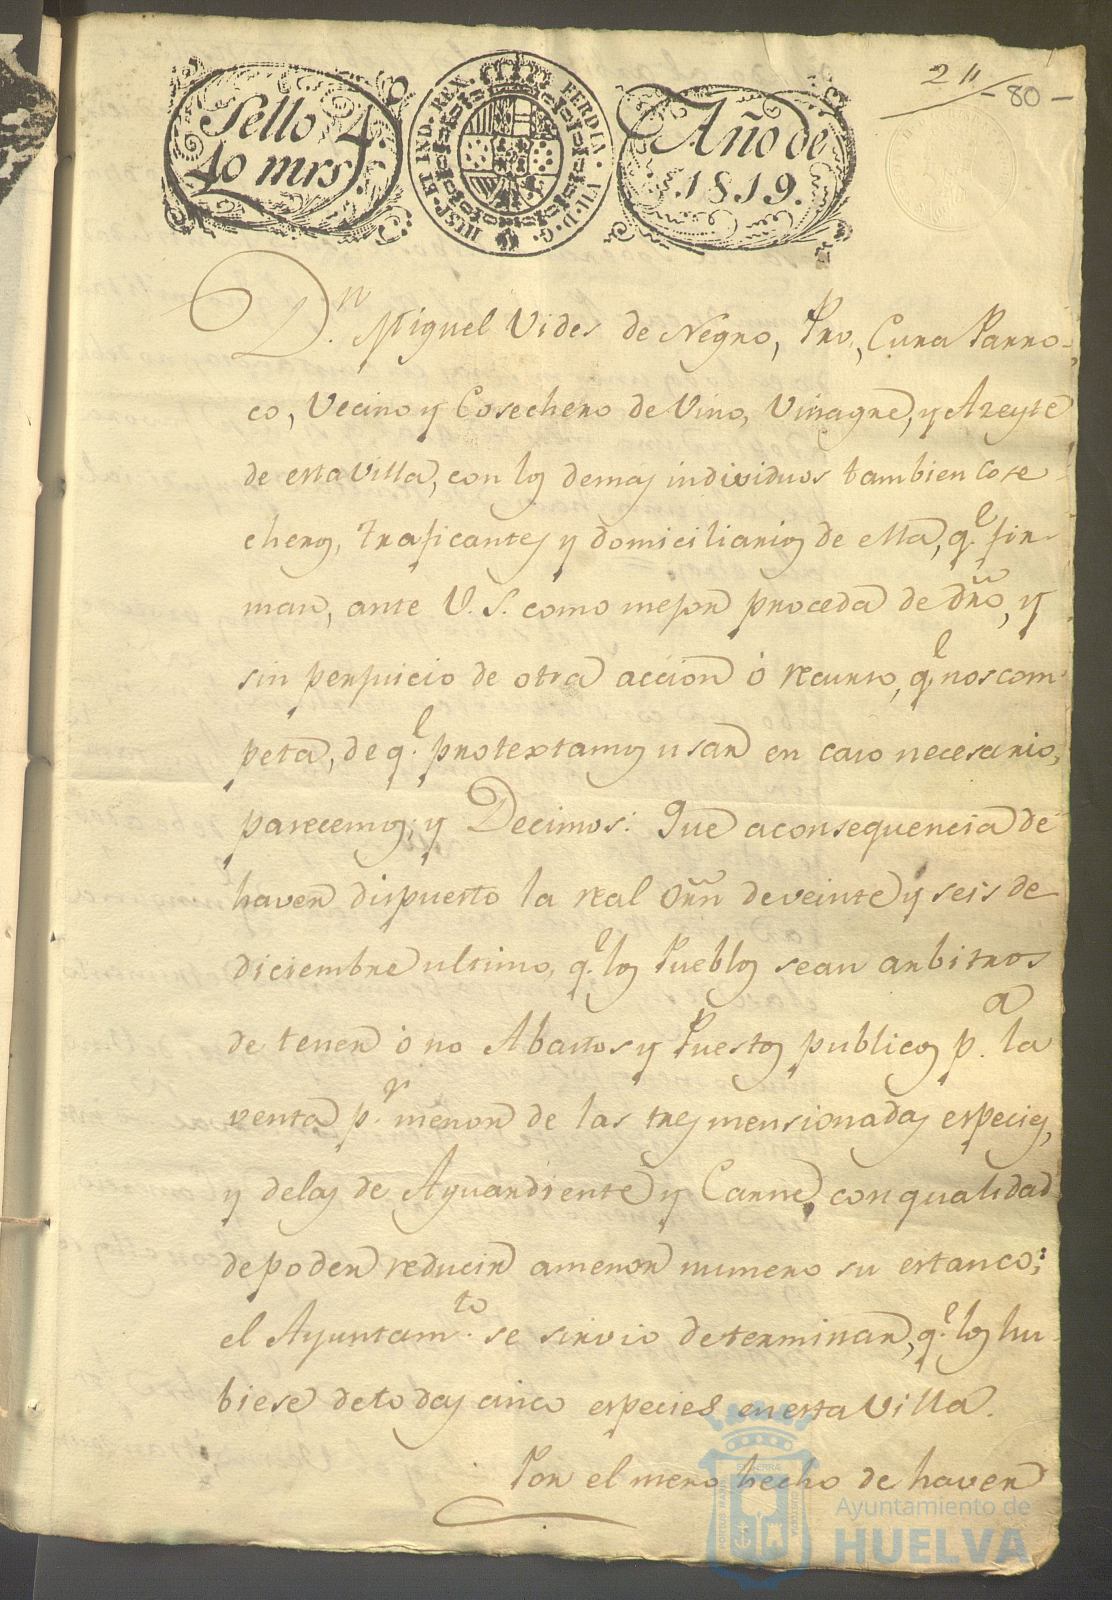 Sello 4.
40 mrs.
HISP. ET IND. REX. FERDIN. VII. D. G.
Año de
1819.
211
- 80 -
D.n Miguel Vides de Negro, Pro., Cura Parro-
co, Vecino y Cosechero de Vino, Vinagre, y Azeyte
de esta Villa, con los demas individuos tambien cose
cheros, traficantes y domiciliarios de ella, q.e fir-
man, ante V. S. como mejor proceda de dro, y
sin perjuicio de otra accion ó recurso, q.e nos com
peta, de q.e protextamos usar en caso necesario,
parecemos, y Decimos: Que aconsequencia de
haver dispuesto la real Orñ de veinte y seis de
diciembre ultimo, q.e los Pueblos sean arbitros
de tener ó no Abastos y Puestos publicos p.a la
venta p.r menor de las tres mensionadas especies,
y delas de Aguardiente y Carne, con qualidad
de poder reducir amenor numero su estanco;
el Ayuntam.to se sirvio determinar, q.e los hu-
biese detodas cinco especies en esta Villa.
Por el mero hecho de haver
Ayuntamiento de
HUELVA